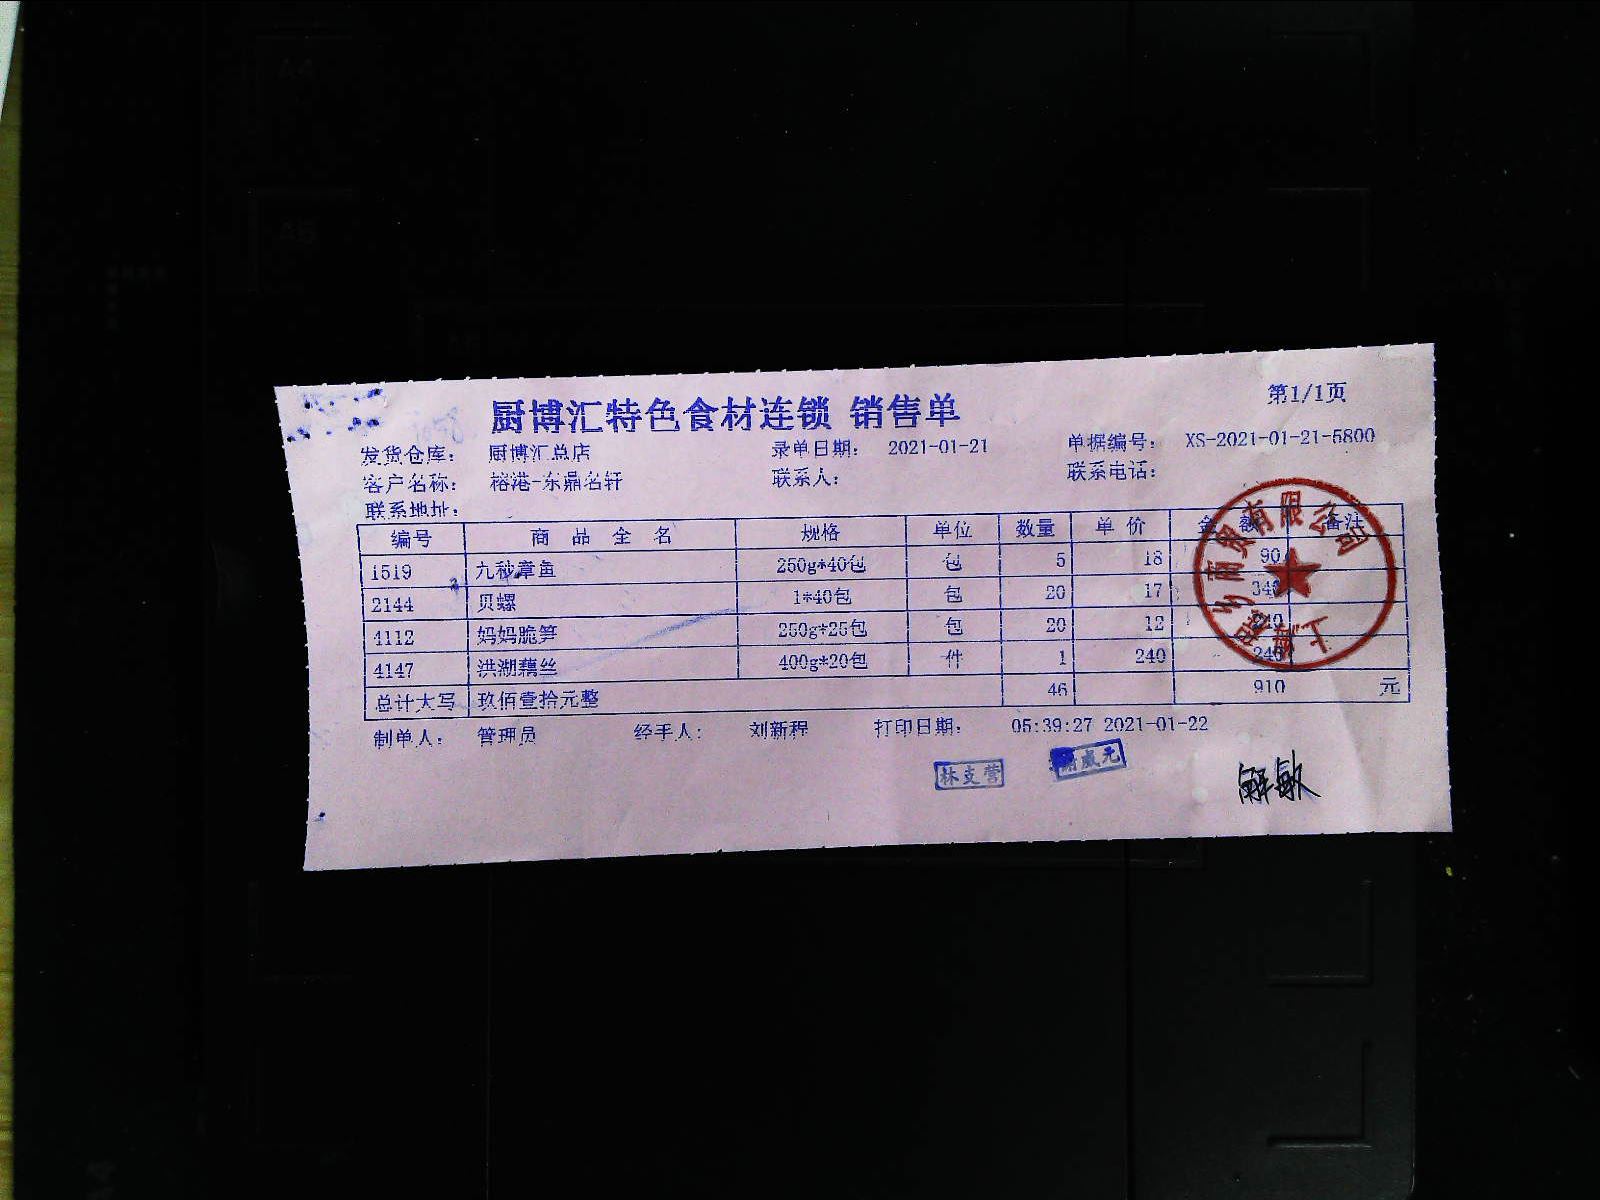 第1/1页
厨博汇特色食材连锁 销售单
发货仓库: 厨博汇总店 录单日期: 2021-01-21 单据编号: XS-2021-01-21-5800
客户名称: 榕港-东鼎名轩 联系人: 联系电话:
联系地址:
编号 商品全名 规格 单位 数量 单价 金额 备注
1519 九秒章鱼 250g*40包 包 5 18 90
2144 贝螺 1*40包 包 20 17 340
4112 妈妈脆笋 250g*25包 包 20 12 240
4147 洪湖藕丝 400g*20包 件 1 240 240
总计大写 玖佰壹拾元整 46 910 元
制单人: 管理员 经手人: 刘新程 打印日期: 05:39:27 2021-01-22
林支营 威元
解敏
商贸有限公司